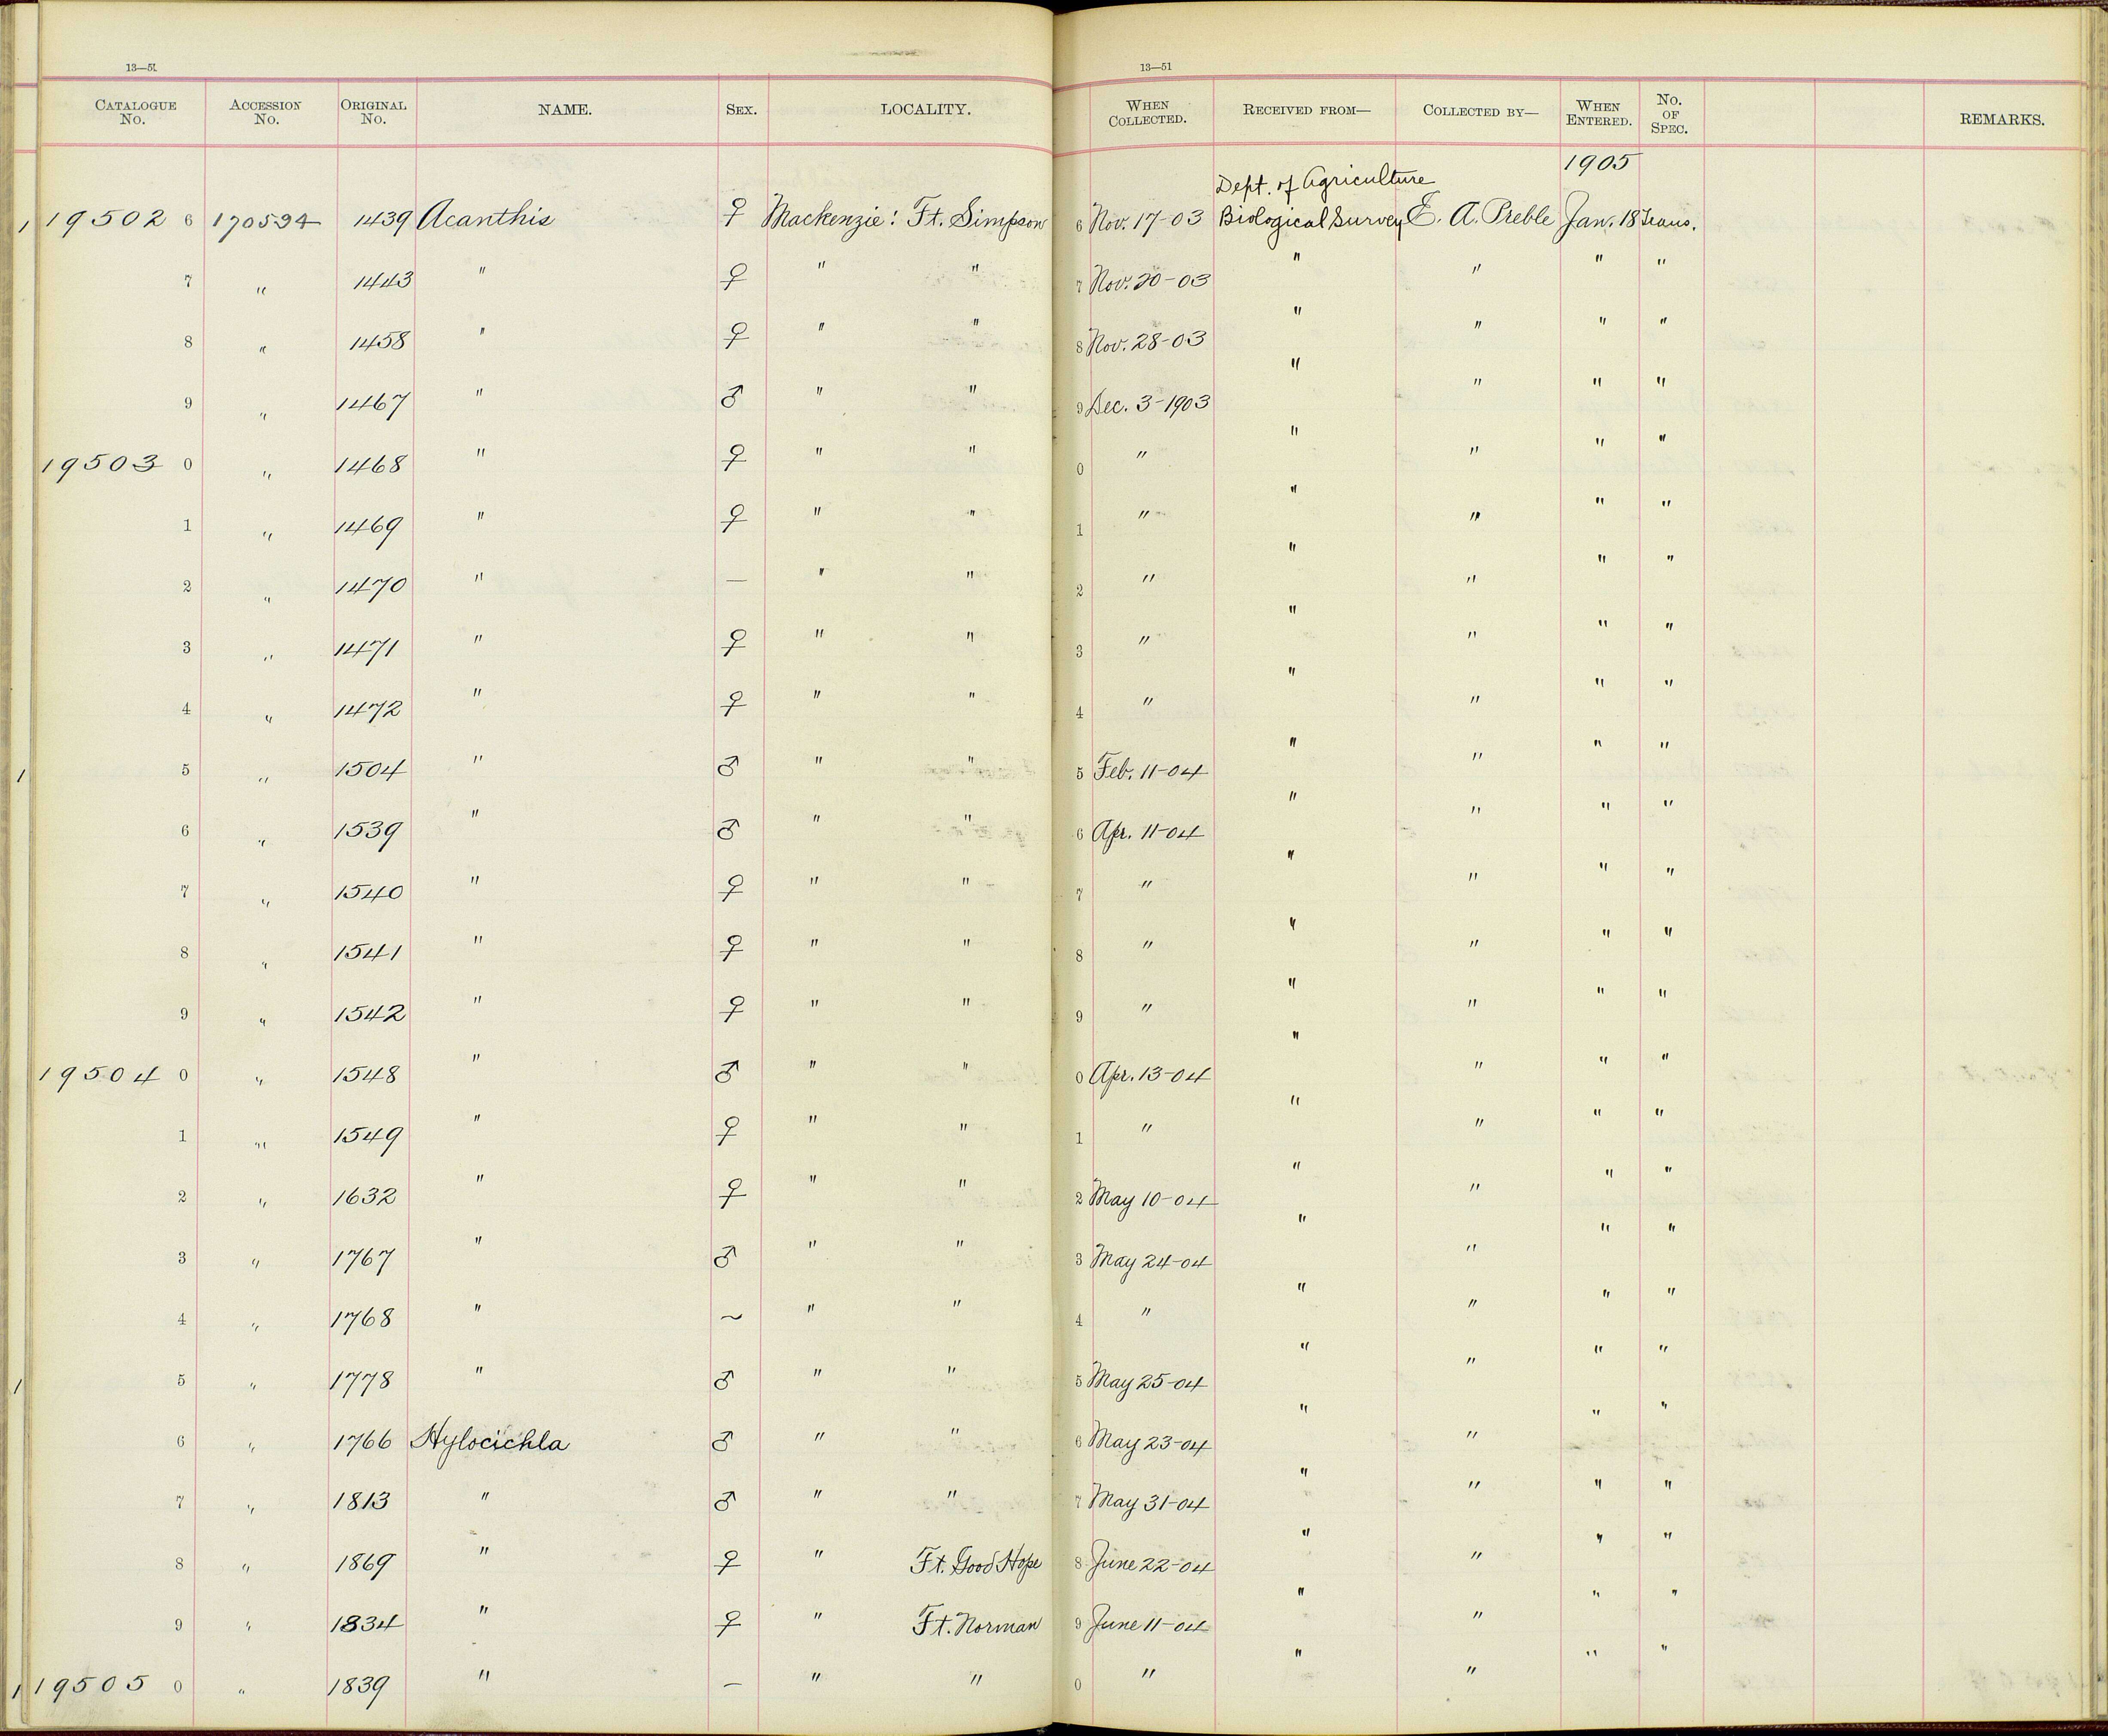 13—51 13—51
CATALOGUE No. ACCESSION No. ORIGINAL No. NAME. SEX. LOCALITY. WHEN COLLECTED. RECEIVED FROM— COLLECTED BY— WHEN ENTERED. No. OF SPEC. REMARKS.
1905
Dept. of Agriculture
1 19502 6 170594 1439 Acanthis ♀ Mackenzie: Ft. Simpson 6 Nov. 17-03 Biological Survey E. A. Preble Jan. 18 Trans.
7 " 1443 " ♀ " " 7 Nov. 20-03 " " " "
8 " 1458 " ♀ " " 8 Nov. 28-03 " " " "
9 " 1467 " ♂ " " 9 Dec. 3-1903 " " " "
19503 0 " 1468 " ♀ " " 0 " " " " "
1 " 1469 " ♀ " " 1 " " " " "
2 " 1470 " — " " 2 " " " " "
3 " 1471 " ♀ " " 3 " " " " "
4 " 1472 " ♀ " " 4 " " " " "
1 5 " 1504 " ♂ " " 5 Feb. 11-04 " " " "
6 " 1539 " ♂ " " 6 Apr. 11-04 " " " "
7 " 1540 " ♀ " " 7 " " " " "
8 " 1541 " ♀ " " 8 " " " " "
9 " 1542 " ♀ " " 9 " " " " "
19504 0 " 1548 " ♂ " " 0 Apr. 13-04 " " " "
1 " 1549 " ♀ " " 1 " " " " "
2 " 1632 " ♀ " " 2 May 10-04 " " " "
3 " 1767 " ♂ " " 3 May 24-04 " " " "
4 " 1768 " ~ " " 4 " " " " "
1 5 " 1778 " ♂ " " 5 May 25-04 " " " "
6 " 1766 Hylocichla ♂ " " 6 May 23-04 " " " "
7 " 1813 " ♂ " " 7 May 31-04 " " " "
8 " 1869 " ♀ " Ft. Good Hope 8 June 22-04 " " " "
9 " 1834 " ♀ " Ft. Norman 9 June 11-04 " " " "
1 19505 0 " 1839 " — " " 0 " " " " "